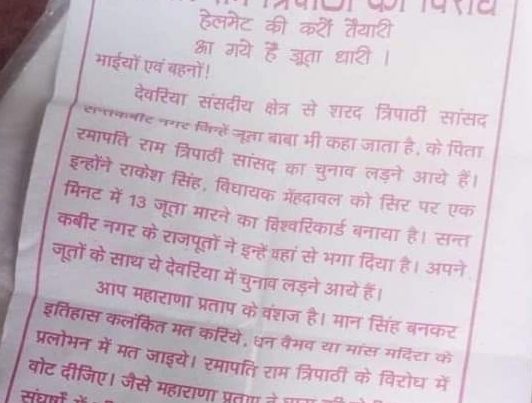 राम त्रिपाठी का विरोध
हेलमेट की करो तैयारी
आ गये है जूता धारी ।
भाईयों एवं बहनों!
देवरिया संसदीय क्षेत्र से शरद त्रिपाठी सांसद
सन्तकबीर नगर जिन्हें जूता बाबा भी कहा जाता है, के पिता
रमापति राम त्रिपाठी सांसद का चुनाव लड़ने आये हैं।
इन्होंने राकेश सिंह, विधायक मेंहदावल को सिर पर एक
मिनट में 13 जूता मारने का विश्वरिकार्ड बनाया है। सन्त
कबीर नगर के राजपूतों ने इन्हें वहां से भगा दिया है। अपने
जूतों के साथ ये देवरिया में चुनाव लड़ने आये हैं।
आप महाराणा प्रताप के वंशज है। मान सिंह बनकर
इतिहास कलंकित मत करिये, धन वैभव या मांस मदिरा के
प्रलोभन में मत जाइये। रमापति राम त्रिपाठी के विरोध में
वोट दीजिए। जैसे महाराणा प्रताप ने घास की
संघर्षों में